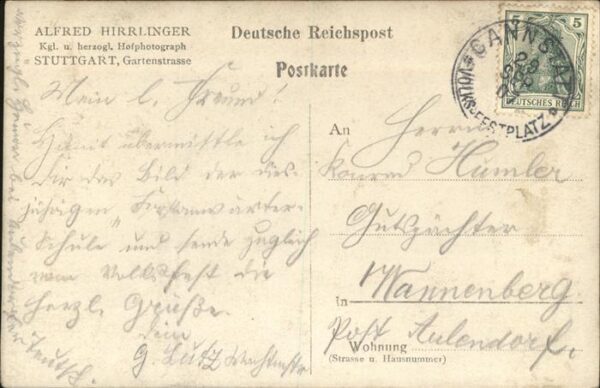 ALFRED HIRRLINGER
Kgl. u. herzogl. Hofphotograph
STUTTGART, Gartenstrasse
Deutsche Reichspost
Postkarte
5 5
DEUTSCHES REICH
CANNSTATT
VOLKSFESTPLATZ
28
SEP
Mein l. Freund!
Hiemit übermittle ich
Dir das Bild der dies-
jährigen
Schule und sende zugleich
vom Volksfest die
herzl. Grüße.
Dein
G. Lutz
An
Herrn
Konrad Humler
Gutspächter
in Wannenberg.
Post Aulendorf.
Wohnung
(Strasse u. Hausnummer)